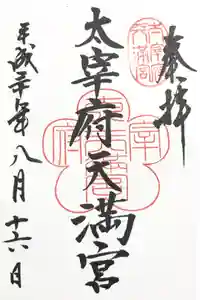 奉拝
太宰府
天満宮
太宰府天満宮
平成二十年八月十六日